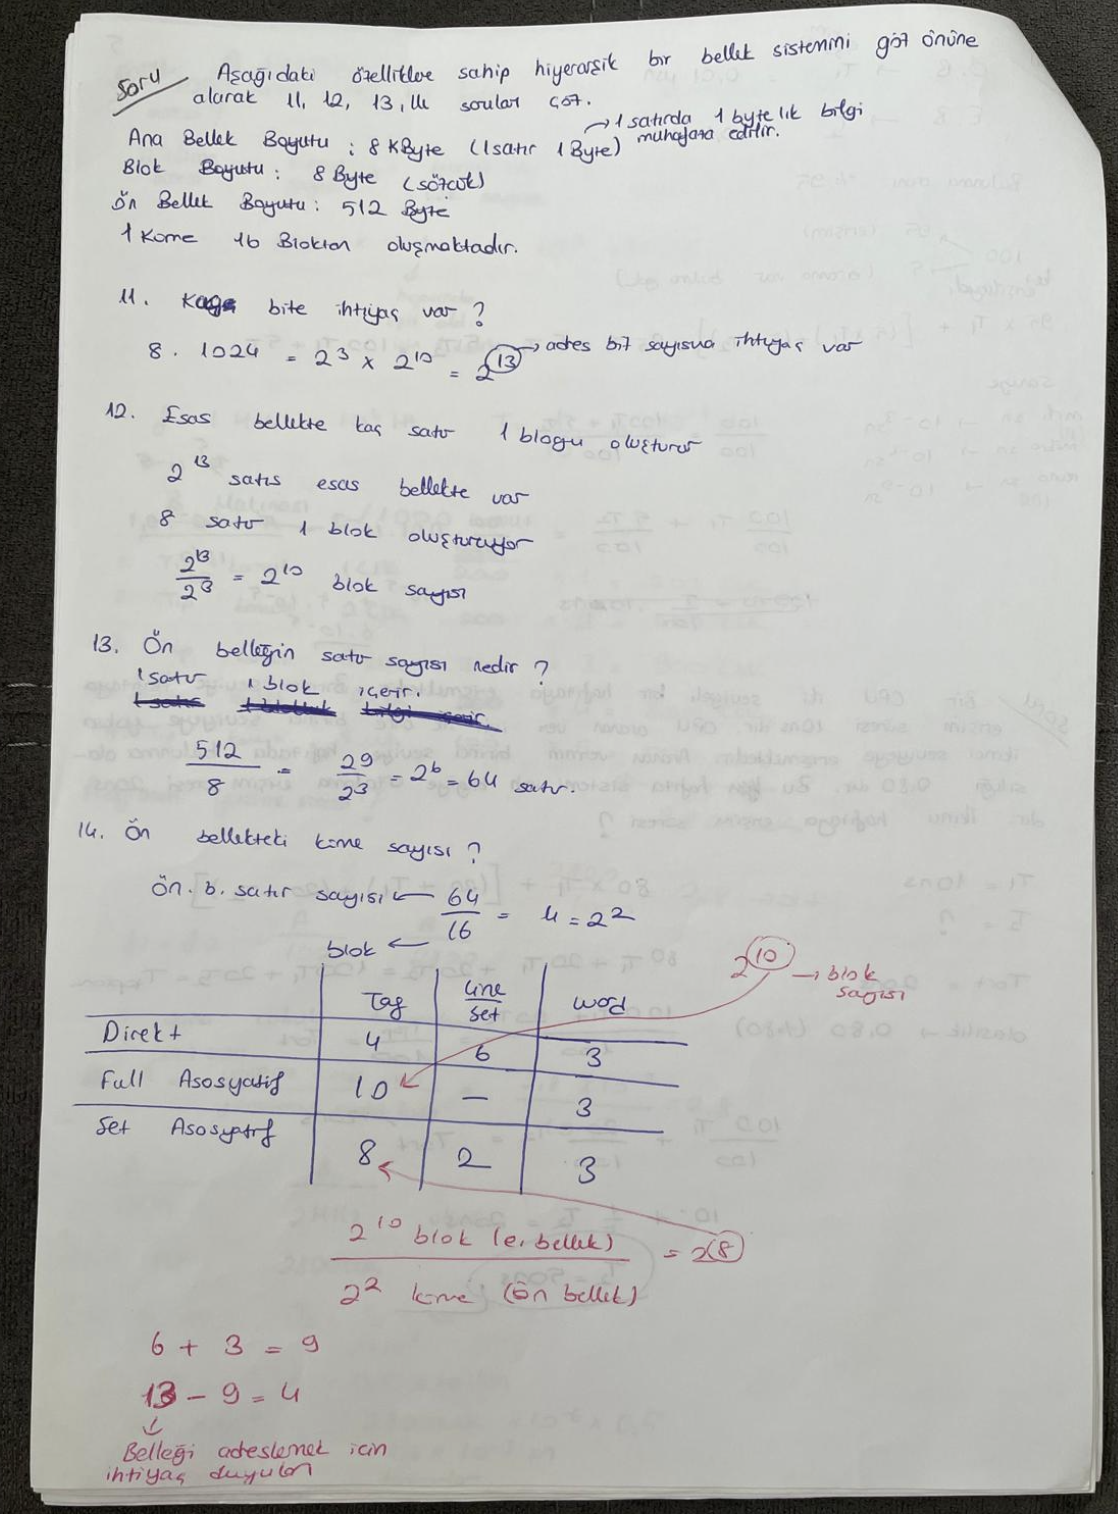 Soru Aşağıdaki özelliklere sahip hiyerarşik bir bellek sistemini göz önüne
alarak 11, 12, 13, ile sorular çöz.
→ 1 satırda 1 byte lık bilgi
muhafaza edilir.
Ana Bellek Boyutu : 8 KByte (1 satır 1 Byte)
Blok Boyutu : 8 Byte (sözcük)
Ön Bellek Boyutu : 512 Byte
1 Küme 16 Bloktan oluşmaktadır.
11. Kaç bite ihtiyaç var ?
8 . 1024 = 2^3 x 2^10 = 2^13 → adres bit sayısına ihtiyaç var
12. Esas bellekte kaç satır 1 bloğu oluşturur
2^13 satır esas bellekte var
8 satır 1 blok oluşturuyor
2^13 / 2^3 = 2^10 blok sayısı
13. Ön belleğin satır sayısı nedir ?
1 satır 1 blok içerir.
512 / 8 = 2^9 / 2^3 = 2^6 = 64 satır.
14. Ön bellekteki küme sayısı ?
Ön. b. satır sayısı ← 64 / 16 = 4 = 2^2
blok ←
2^10 → blok
sayısı
Tag Line/Set Word
Direkt 4 6 3
Full Asosyatif 10 — 3
Set Asosyatif 8 2 3
2^10 blok (e. bellek) / 2^2 küme (ön bellek) = 2^8
6 + 3 = 9
13 - 9 = 4
↓
Belleği adreslemek için
ihtiyaç duyulan